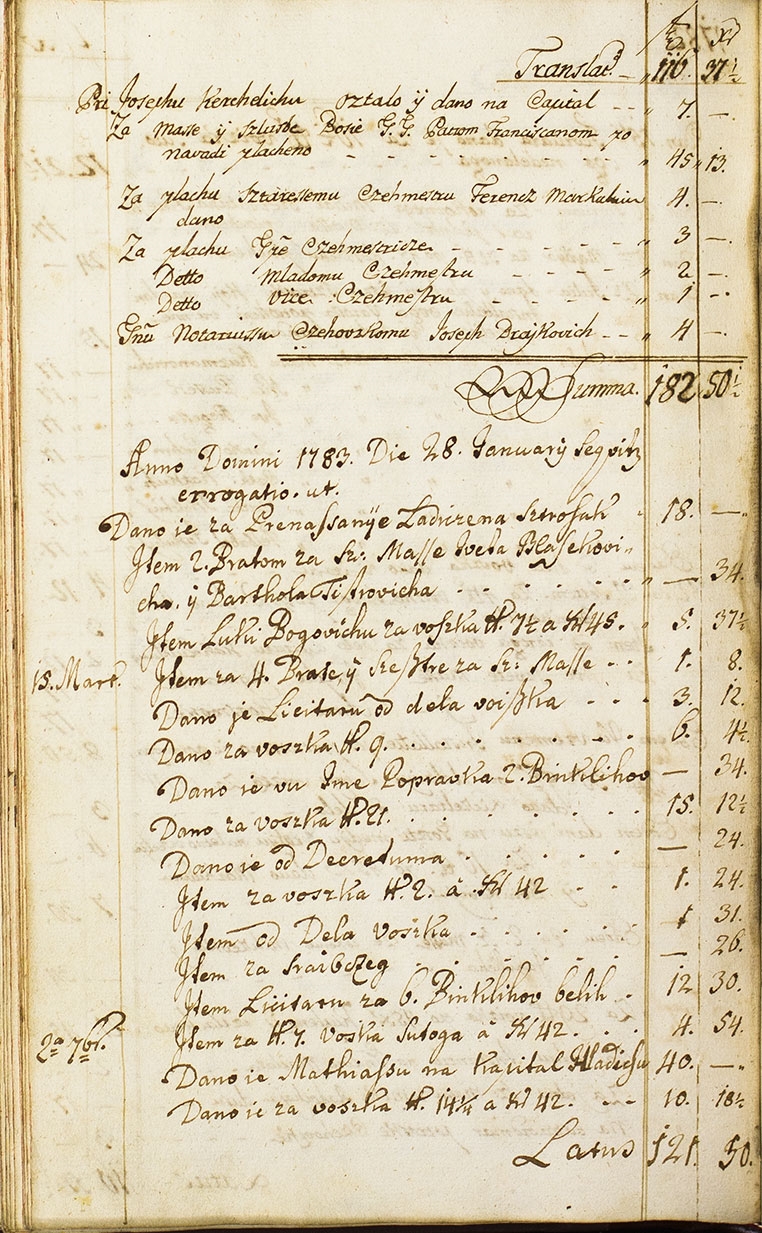 fl Xr
Translat: — „ 116. 37½
Pri Josephu Kerchelichu oztalo ÿ dano na Capital — — „ 7. —.
Za Masse ÿ szlusbe Bosie G. G. Patrom Franciscanom po
navadi placheno „ 45 „ 13.
Za plachu Sztaressemu Czehmestru Ferencz 4. —.
dano
Za plachu Gñe Czehmestricze — „ 3 —.
Detto Mladomu Czehmestru „ 2 —.
Detto Vice Czehmestru „ 1 —.
Gñu Notariussu Czehovzkomu Joseph Drajkovich — — „ 4 —.
Summa. 182 50½
Anno Domini 1783. Die 28. Januarÿ
errogatio. ut.
Dano ie za Prenassanÿe Ladiczena 18. —
Item 2. Bratom za Sz: Masse Iveka Blasekovi-
cha. ÿ Barthola Tistrovicha — 34.
Item Luki Bogovichu za voszka ℔. 7½ a Xr 45. „ 5. 37½
15. Mart. Item za 4. Brate, ÿ Szesztre za Sz: Masse - - 1. 8.
Dano je Licitaru od dela voiszka 3. 12.
Dano za voszka ℔. 9. 6. 4½
Dano ie vu Ime Popravka 2. Binklihov — 34.
Dano za voszka ℔. 21. 15. 12½
Dano ie od Decretuma — 24.
Item za voszka ℔. 2. a Xr 42 1. 24.
Item od Dela voszka 1 31.
Item za — 26.
Item Licitaru za 6. Binklihov belih 12 30.
2ª 7br. Item za ℔. 7. voska sutoga a Xr 42. 4. 54.
Dano ie Mathiassu na kapital Hladichu 40. —
Dano ie za voszka ℔. 14¼ a Xr 42. 10. 18½
Latus 121. 50.